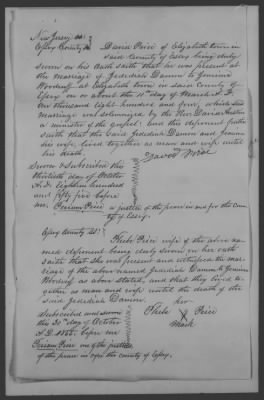 New Jersey ss
Essex County ss David Price of Elizabeth town in
said County of Essex being duly
sworn on his oath saith that he was present at
the marriage of Jedediah Damon to Jemima
Woodruff at Elizabeth town in said County of
Essex on or about the day of March A.D.
one thousand eight hundred and four, which said
marriage was solemnized by the Rev.
a minister of the Gospel: and this deponent further
saith that the said Jedediah Damon and Jemima
his wife lived together as man and wife until
his death.
David Price
Sworn & Subscribed this
thirtieth day of October
A.D. Eighteen hundred
and fifty five before
Price a justice of the peace in and for the County
of Essex.
Essex County ss. Phebe Price wife of the above na-
med deponent being duly sworn on her oath
saith that she was present and witnessed the mar-
riage of the above named Jedediah Damon to Jemima
Woodruff as above stated, and that they lived to-
gether as man and wife until the death of the
said Jedediah Damon.
her
Subscribed and sworn Phebe X Price
the 30th day of October mark
A.D. 1855. before me
Price one of the justices
of the peace in & for the county of Essex.